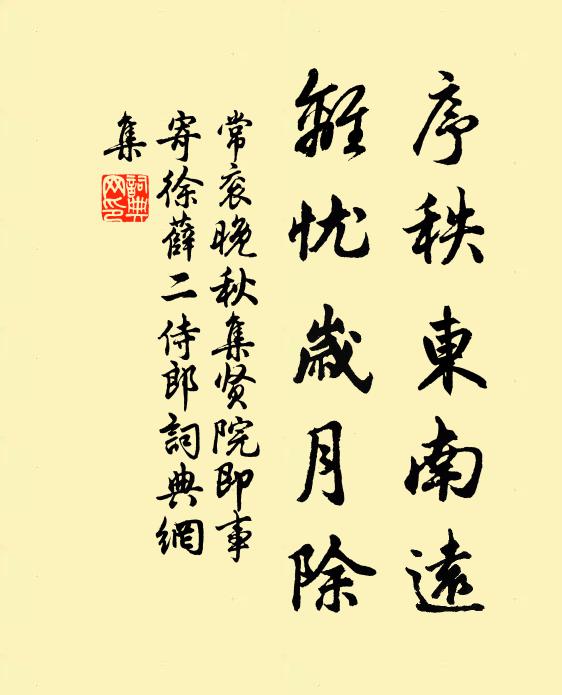 序秩東南遠
離忧歲月除
常衮晚秋集贤院即事
寄徐薛二侍郎詞典網
集
詞典
网印